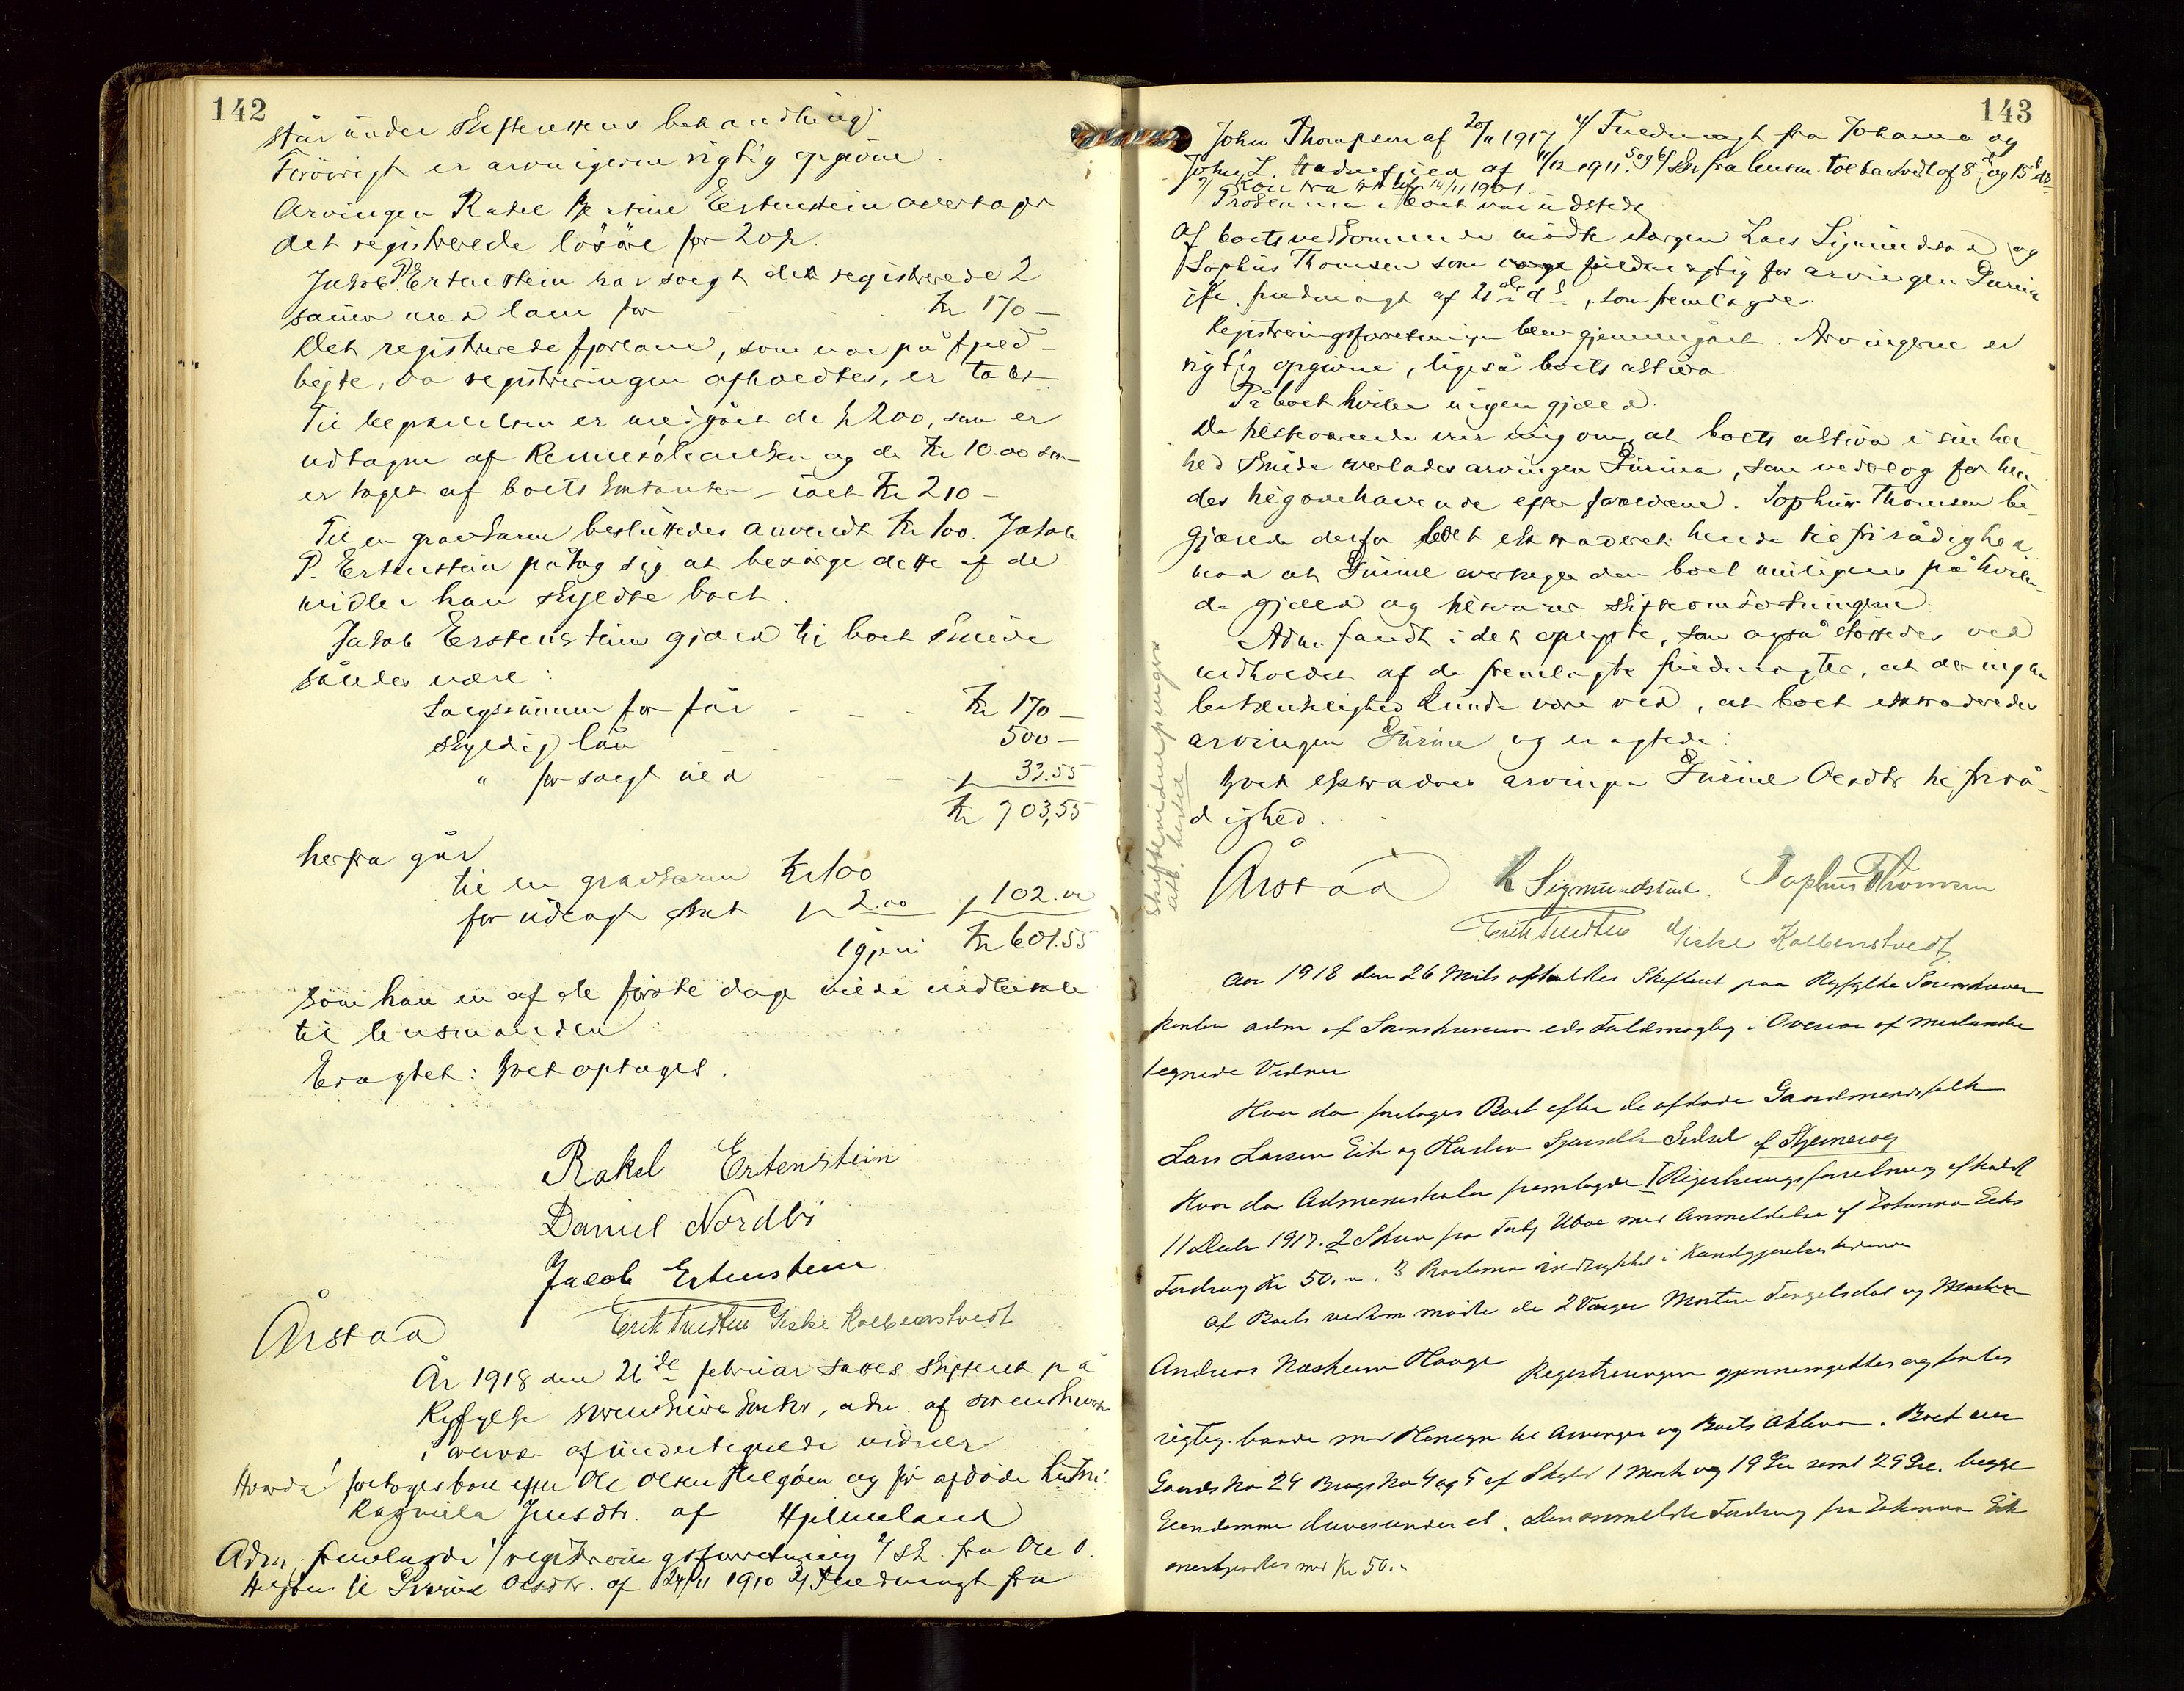 142
står under skifterettens behandling.
Forövrigt er arvingerne rigtig opgivne.
Arvingen Rakel Kristine Ertenstein overtager
det registrerede lösöre for 20 kr.
Jakob P. Ertenstein har solgt det registrerede 2
sauer med lam for kr 170 –
Det registrerede fjorlam, som var på fjeld-
bejte, da registreringen afholdtes, er tabt.
Til begravelsen er medgået de kr 200, som er
udtagne af Rennesö og de kr 10.00 som
er taget af boets kontanter – ialt kr 210 –
Til en gravskarm besluttedes anvendt kr 100. Jakob
P. Ertenstein påtog sig at besörge dette af de
midler han skyldte boet.
Jakob Erstenstein gjæld til boet skulde
således være:
Salgssummen for får kr 170 –
skyldig lån 500 –
" for solgt ved 33.55
kr 703,55
herfra går
til en gravskarm kr 100
for udlagt skat 2.00 102.00
igjen kr 601.55
som han en af de förste dage vilde indbetale
til lensmanden
Eragtet: Boet optages.
Rakel Ertenstein
Daniel Nordbö
Jacob Ertenstein
Årstad
Giske Kolbenstvedt
År 1918 den 21de februar sattes skifteret på
Ryfylke sorenskriverkontor, adm. af sorenskriveren
i overvær af undertegnede vidner
Hvorda: foretoges boet efter Ole Olsen Helgöen og för afdöde hustru
Ragnilla Jensdtr. af Hjelmeland
Adm. fremlagde 1/ registreringsforretning 2/ sk. fra Ole O.
Helgöen til Gurine Olsdtr. af 24/11 1910 3/ Fuldmagt fra
143
John Thompson af 20/11 1917 4/ Fuldmagt fra Johanna og
John L. af 4/12 1911. 5 og 6/ skr fra lensm. tolbachvdt af 8 og 15
7/ 14/11 1901.
Proklama i boet var udstedt
Af boets vedkommende mödte værgen Lars Sigmundstad og
Sophus Thomsen som fuldmægtig for arvingen Gurine
ifl. fuldmagt af 21de ds, som fremlagdes.
Registreringsforretningen blev gjennemgået. Arvingerne er
rigtig opgivne, ligeså boets aktiva
På boet hviler ingen gjæld.
De tilstedeværende var enig om, at boets aktiva i sin hel-
hed skulde overlades arvingen Gurine, som vederlag for hen-
des tilgodehavende efter forældrene. Sophus Thomsen be-
gjærede derfor boet ekstraderet hende til fri rådighed
mod at Gurine overtager den boet muligens påhvilen-
de gjæld og tilsvarer skifteomkostningerne
Adm. fandt i det oplyste, som også stöttedes ved
indholdet af de fremlagte fuldmagter, at der ingen
betænkelighed kunde være ved, at boet ekstraderedes
arvingen Gurine og eragtede:
Boet ekstraderes arvingen Gurine Olsdtr. til fri rå-
dighed.
Årstad L Sigmundstad. Sophus Thomsen
Giske Kolbenstvedt
Aar 1918 den 26 Marts afholdtes Skifteret paa Ryfylke Sorenskriver
kontor adm af Sorenskriveren eds Fuldmægtig i Overvær af medunder
tegnede Vidner
Hvor da foretoges Boet efter de afdøde Gaardmandsfolk
Lars Larsen Eik og Hustru Siri
Hvor da Administrator fremlagde 1 Registreringsforretning afholdt
11 1917. 2 Skriv fra med Anmeldelse af Johanna Eiks
Fordring Kr 50.–. 3 Proklama indrykket i Kundgjørelsestidende
Af Boets vedkom mødte de 2 Værger Morten Tengelsdal og
Andreas Hauge Registreringen gjennemgikkes og fandtes
rigtig baade med Hensyn til Arvinger og Boets Aktiva. Boet eier
Gaards No 24 Brugs No 4 og 5 af Skyld 1 Mark og 19 Øre samt 29 Øre. begge
Eiendomme . Den anmeldte Fordring fra Johanna Eik
anerkjendtes med Kr 50.–